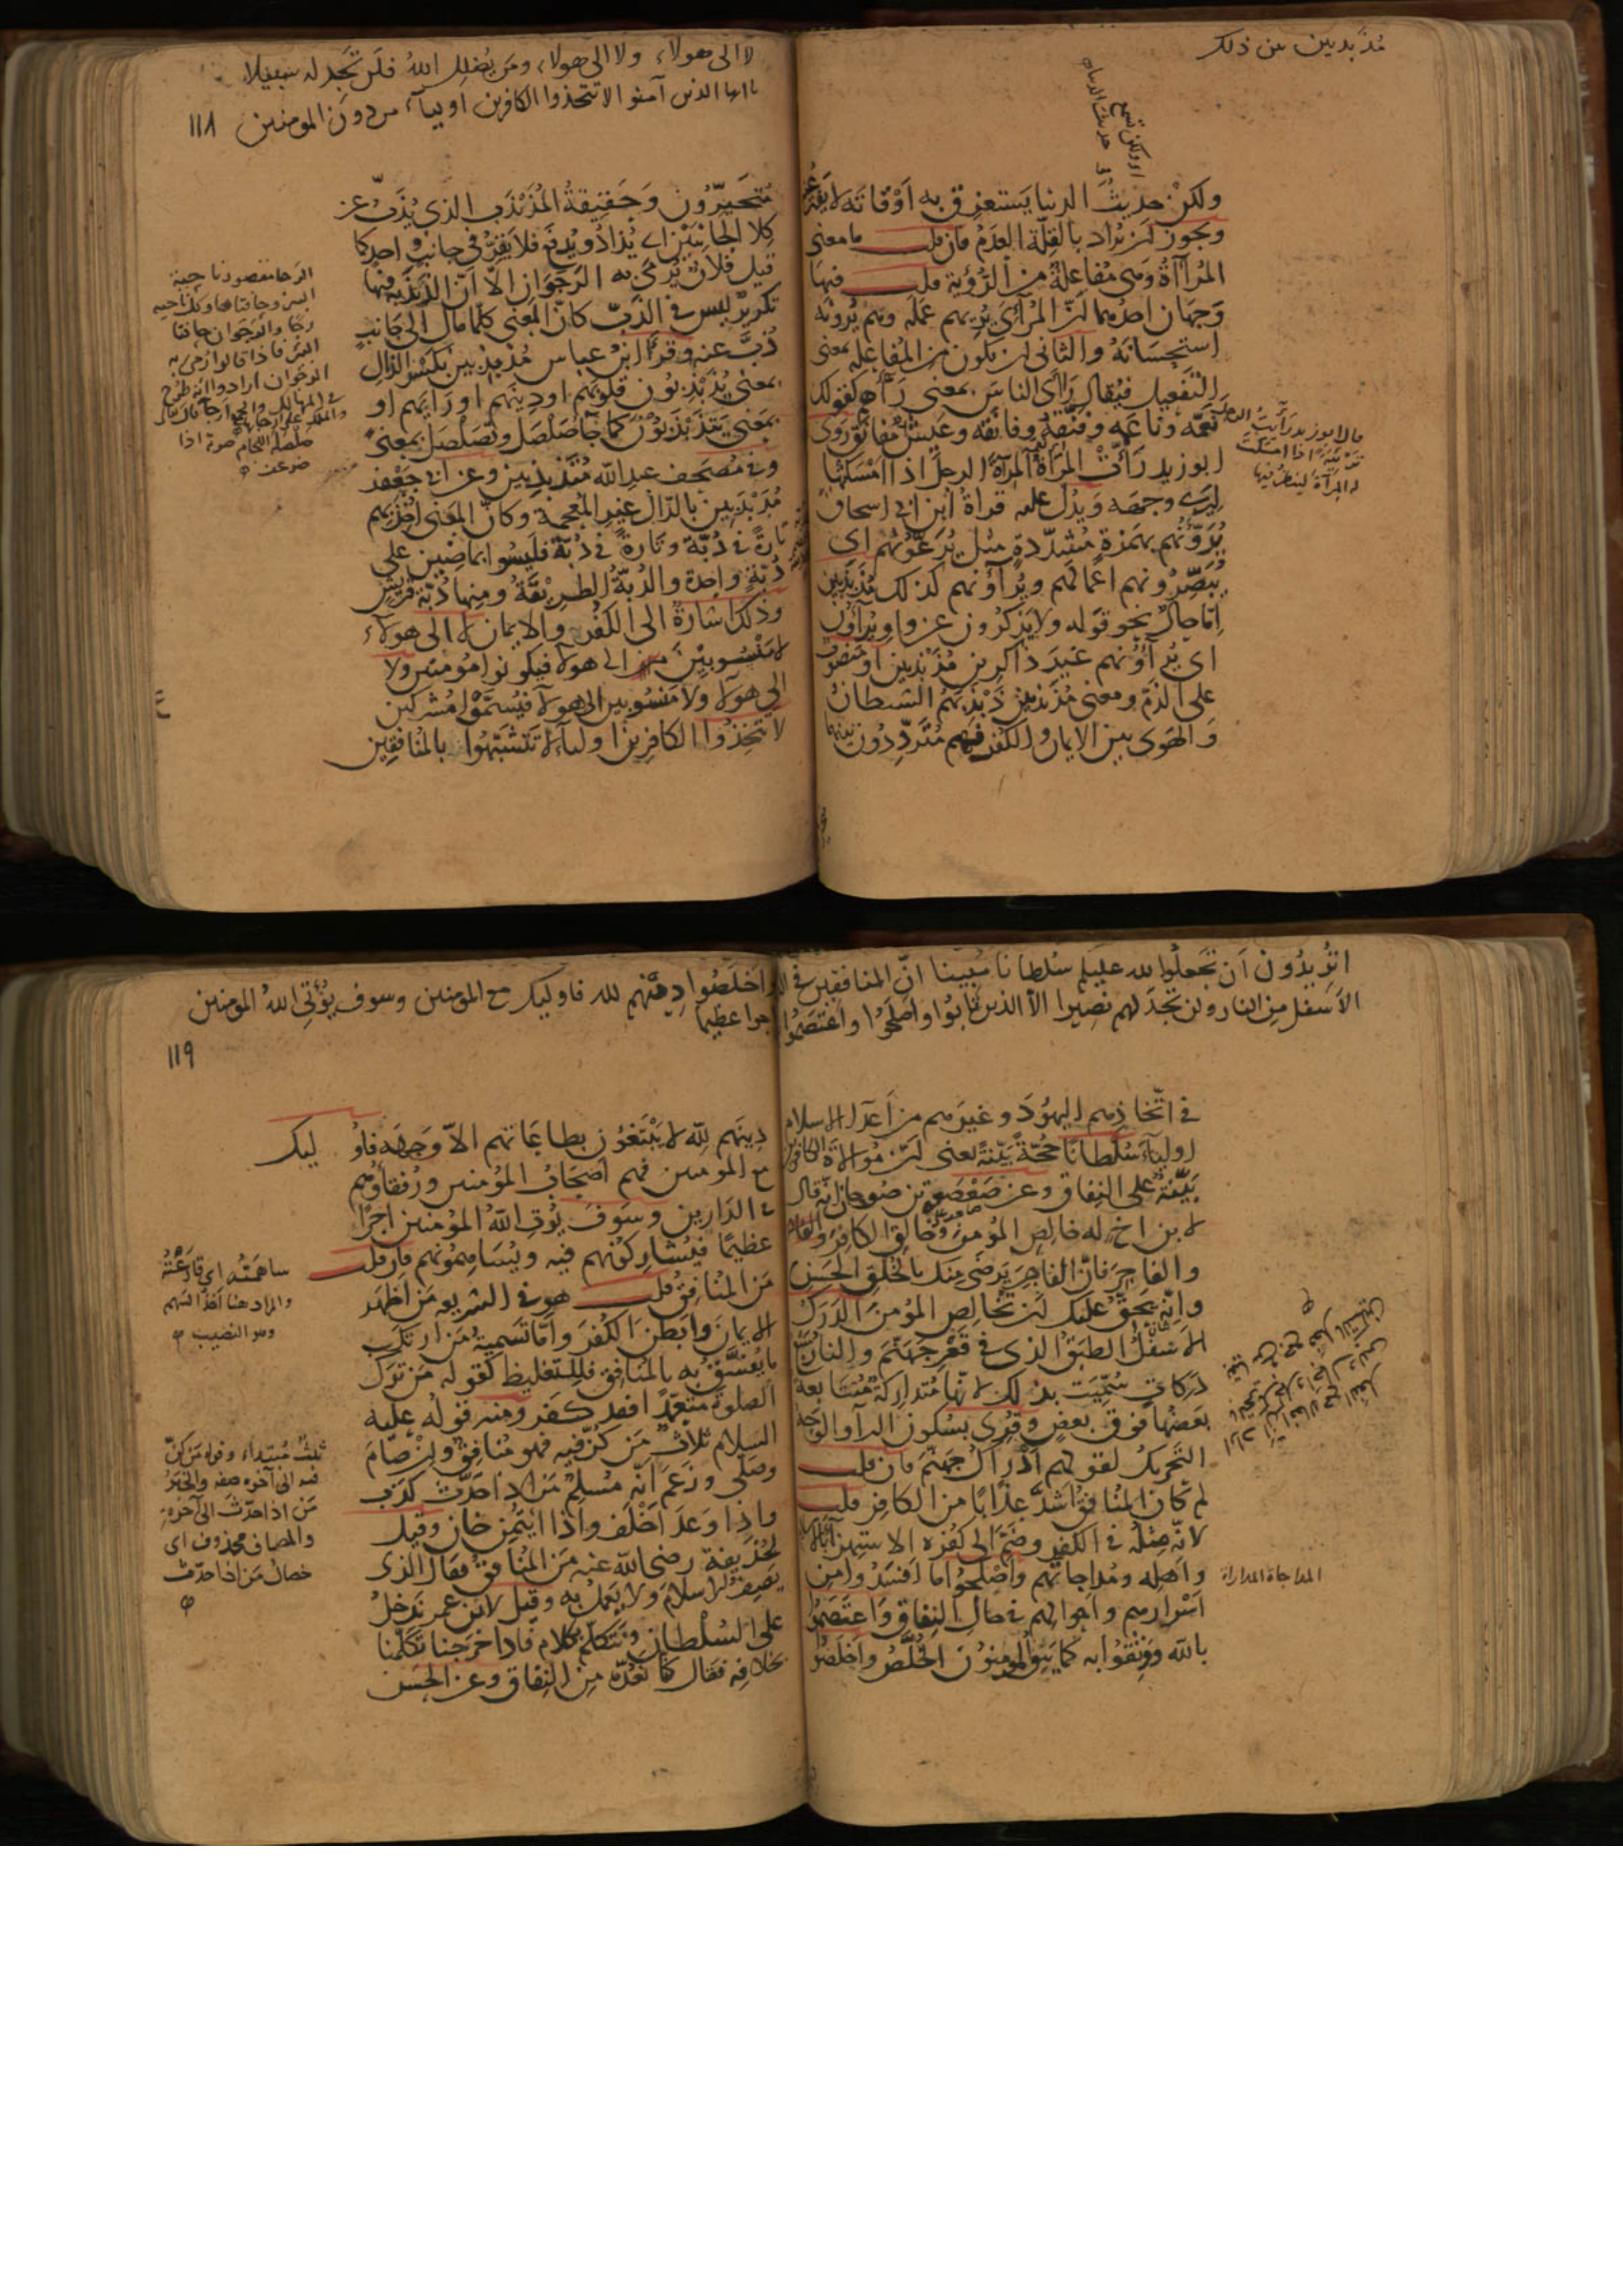 مذبذبين بين ذلك
ولكن حديث الدنيا يستغرق به اوقاته لا يفتر عنه
ويجوز ان يراد بالقلة العدم فان قلت ما معنى
المراآة وهى مفاعلة من الرؤية قلت فيها
وجهان احدهما ان المرائى يريهم عمله وهم يرونه
استحسانه والثانى ان يكون من المفاعلة بمعنى
التفعيل فيقال راأى الناس بمعنى رأاهم كقولك
نعمه وناعمه وفنقه وفانقه وعيش مفانق روى
ابو زيد رأت المرأة المرآة الرجل اذا امسكتها
ليرى وجهه ويدل عليه قراة ابن ابى اسحاق
يرؤنهم بهمزة مشددة مثل يرعونهم اى
يبصرونهم اعمالهم ويراؤنهم كذلك مذبذبين
اما حال نحو قوله ولا يذكرون عن واو يراؤن
اى يراؤنهم غير ذاكرين مذبذبين او منصوب
على الذم ومعنى مذبذبين ذبذبهم الشيطان
والهوى بين الايمان والكفر فهم مترددون بينهما
قال ابو زيد رأيت الرجل
ترئية اذا امسكت
له المرآة لينظر فيها
لا الى هولاء ولا الى هولاء ومن يضلل الله فلن تجد له سبيلا
يا ايها الذين آمنوا لا تتخذوا الكافرين اولياء من دون المومنين
١١٨
متحيرون وحقيقة المذبذب الذى يذب عن
كلا الجانبين اى يذاد ويدفع فلا يقر فى جانب واحد كما
قيل فلان يرمى به الرجوان الا ان الذبذبة فيها
تكرير ليس فى الذب كان المعنى كلما مال الى جانب
ذب عنه وقرأ ابن عباس مذبذبين بكسر الذال
بمعنى يذبذبون قلوبهم او دينهم او رايهم او
بمعنى يتذبذبون كما جا صلصل وتصلصل بمعنى
وفى مصحف عبد الله متذبذبين وعن ابى جعفر
مدبدبين بالدال غير المعجمة وكان المعنى اخذ بهم
تارة فى دبة وتارة فى دبة فليسوا بماضين على
دبة واحدة والدبة الطريقة ومنها دبة قريش
وذلك اشارة الى الكفر والايمان لا الى هولاء
لا منسوبين الى هولا فيكونوا مومنين ولا
الى هولا ولا منسوبين الى هولا فيسموا مشركين
لا تتخذوا الكافرين اوليآء لا تتشبهوا بالمنافقين
الرجا مقصور ناحية
البئر وحافتاها وكل ناحيه
رجا والرجوان حافتا
البئر فاذا قالوا رمى به
الرجوان ارادوا انه طرح
فى المهالك
صلصلة اللجام صوته اذا
ضوعف
اتريدون ان تجعلوا لله عليكم سلطانا مبينا ان المنافقين فى الدرك
الاسفل من النار ولن تجد لهم نصيرا الا الذين تابوا واصلحوا واعتصموا
فى اتخاذهم اليهود وغيرهم من اعداء الاسلام
اوليآء سلطانا حجة بينة يعنى ان موالاة الكافرين
بينة على النفاق وعن صعصعة بن صوحان انه قال
لابن اخ له خالص المؤمن وخالق الكافر
والفاجر فان الفاجر يرضى منك بالخلق الحسن
وانه يحق عليك ان تخالص المؤمن الدرك
الاسفل الطبق الذى فى قعر جهنم والنار سبع
دركات سميت بذلك لانها متداركة متتابعة
بعضها فوق بعض وقرى بسكون الرآ والوجه
التحريك لقولهم ادراك جهنم فان قلت
لم كان المنافق اشد عذابا من الكافر قلت
لانه مثله فى الكفر وضم الى كفره الاستهزآ بالاسلام
واهله ومداجاتهم واصلحوا ما افسدوا من
اسرارهم واحوالهم فى حال النفاق واعتصموا
بالله ووثقوا به كما يثق المومنون الخلص واخلصوا
المداجاة المداراة
واخلصوا دينهم لله فاوليك مع المومنين وسوف يؤتى الله المومنين
اجرا عظيما
١١٩
دينهم لله لا يبتغون بطاعاتهم الا وجهه فاوليك
مع المومنين فهم اصحاب المؤمنين ورفقاؤهم
فى الدارين وسوف يؤت الله المؤمنين اجرا
عظيما فيشاركونهم فيه ويساهمونهم فان قلت
من المنافق قلت هو فى الشريعه من اظهر
الايمان وابطن الكفر واما تسمية من ارتكب
ما يفسق به بالمنافق فللتغليظ كقوله من ترك
الصلوة متعمدا فقد كفر ومنه قوله عليه
السلام ثلاث من كن فيه فهو منافق وان صام
وصلى وزعم انه مسلم من اذا حدث كذب
واذا وعد اخلف واذا ايتمن خان وقيل
لحذيفة رضى الله عنه من المنافق فقال الذى
يصف الاسلام ولا يعمل به وقيل لابن عمر ندخل
على السلطان ونتكلم بكلام فاذا خرجنا تكلمنا
بخلافه فقال كنا نعده من النفاق وعن الحسن
ساهمته اى قارعته
والمراد هنا اخذ السهم
وهو النصيب
ثلث مبتداء وقوله من كن
فيه الى آخره صفه والخبر
من اذا حدث الى آخره
والمضاف محذوف اى
خصال من اذا حدث